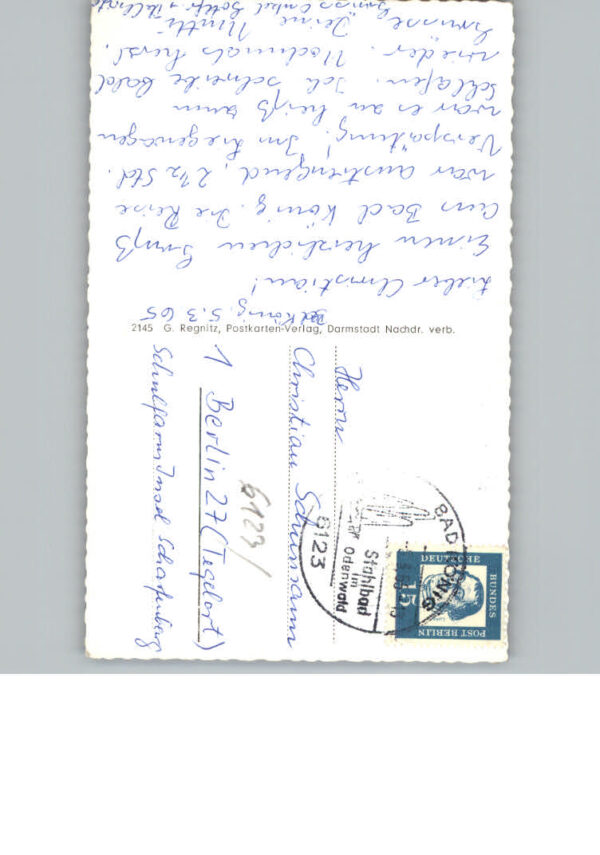 Bad König. 5.3.65
Lieber Christian!
Einen herzlichen Gruß
aus Bad König. Die Reise
war anstrengend, 2 1/2 Std.
Verspätung! Im Liegewagen
war es zu heiß zum
schlafen. Ich schreibe bald
wieder. Nochmals herzl.
Grüsse Deine Mutti
Onkel
2145 G. Regnitz, Postkarten-Verlag, Darmstadt Nachdr. verb.
Herrn
Christian Schürmann
1 Berlin 27 (Tegelort)
Schulfarm Insel Scharfenberg
6123/
BAD KÖNIG
Stahlbad
im
Odenwald
6123
DEUTSCHE
BUNDES
POST BERLIN
15